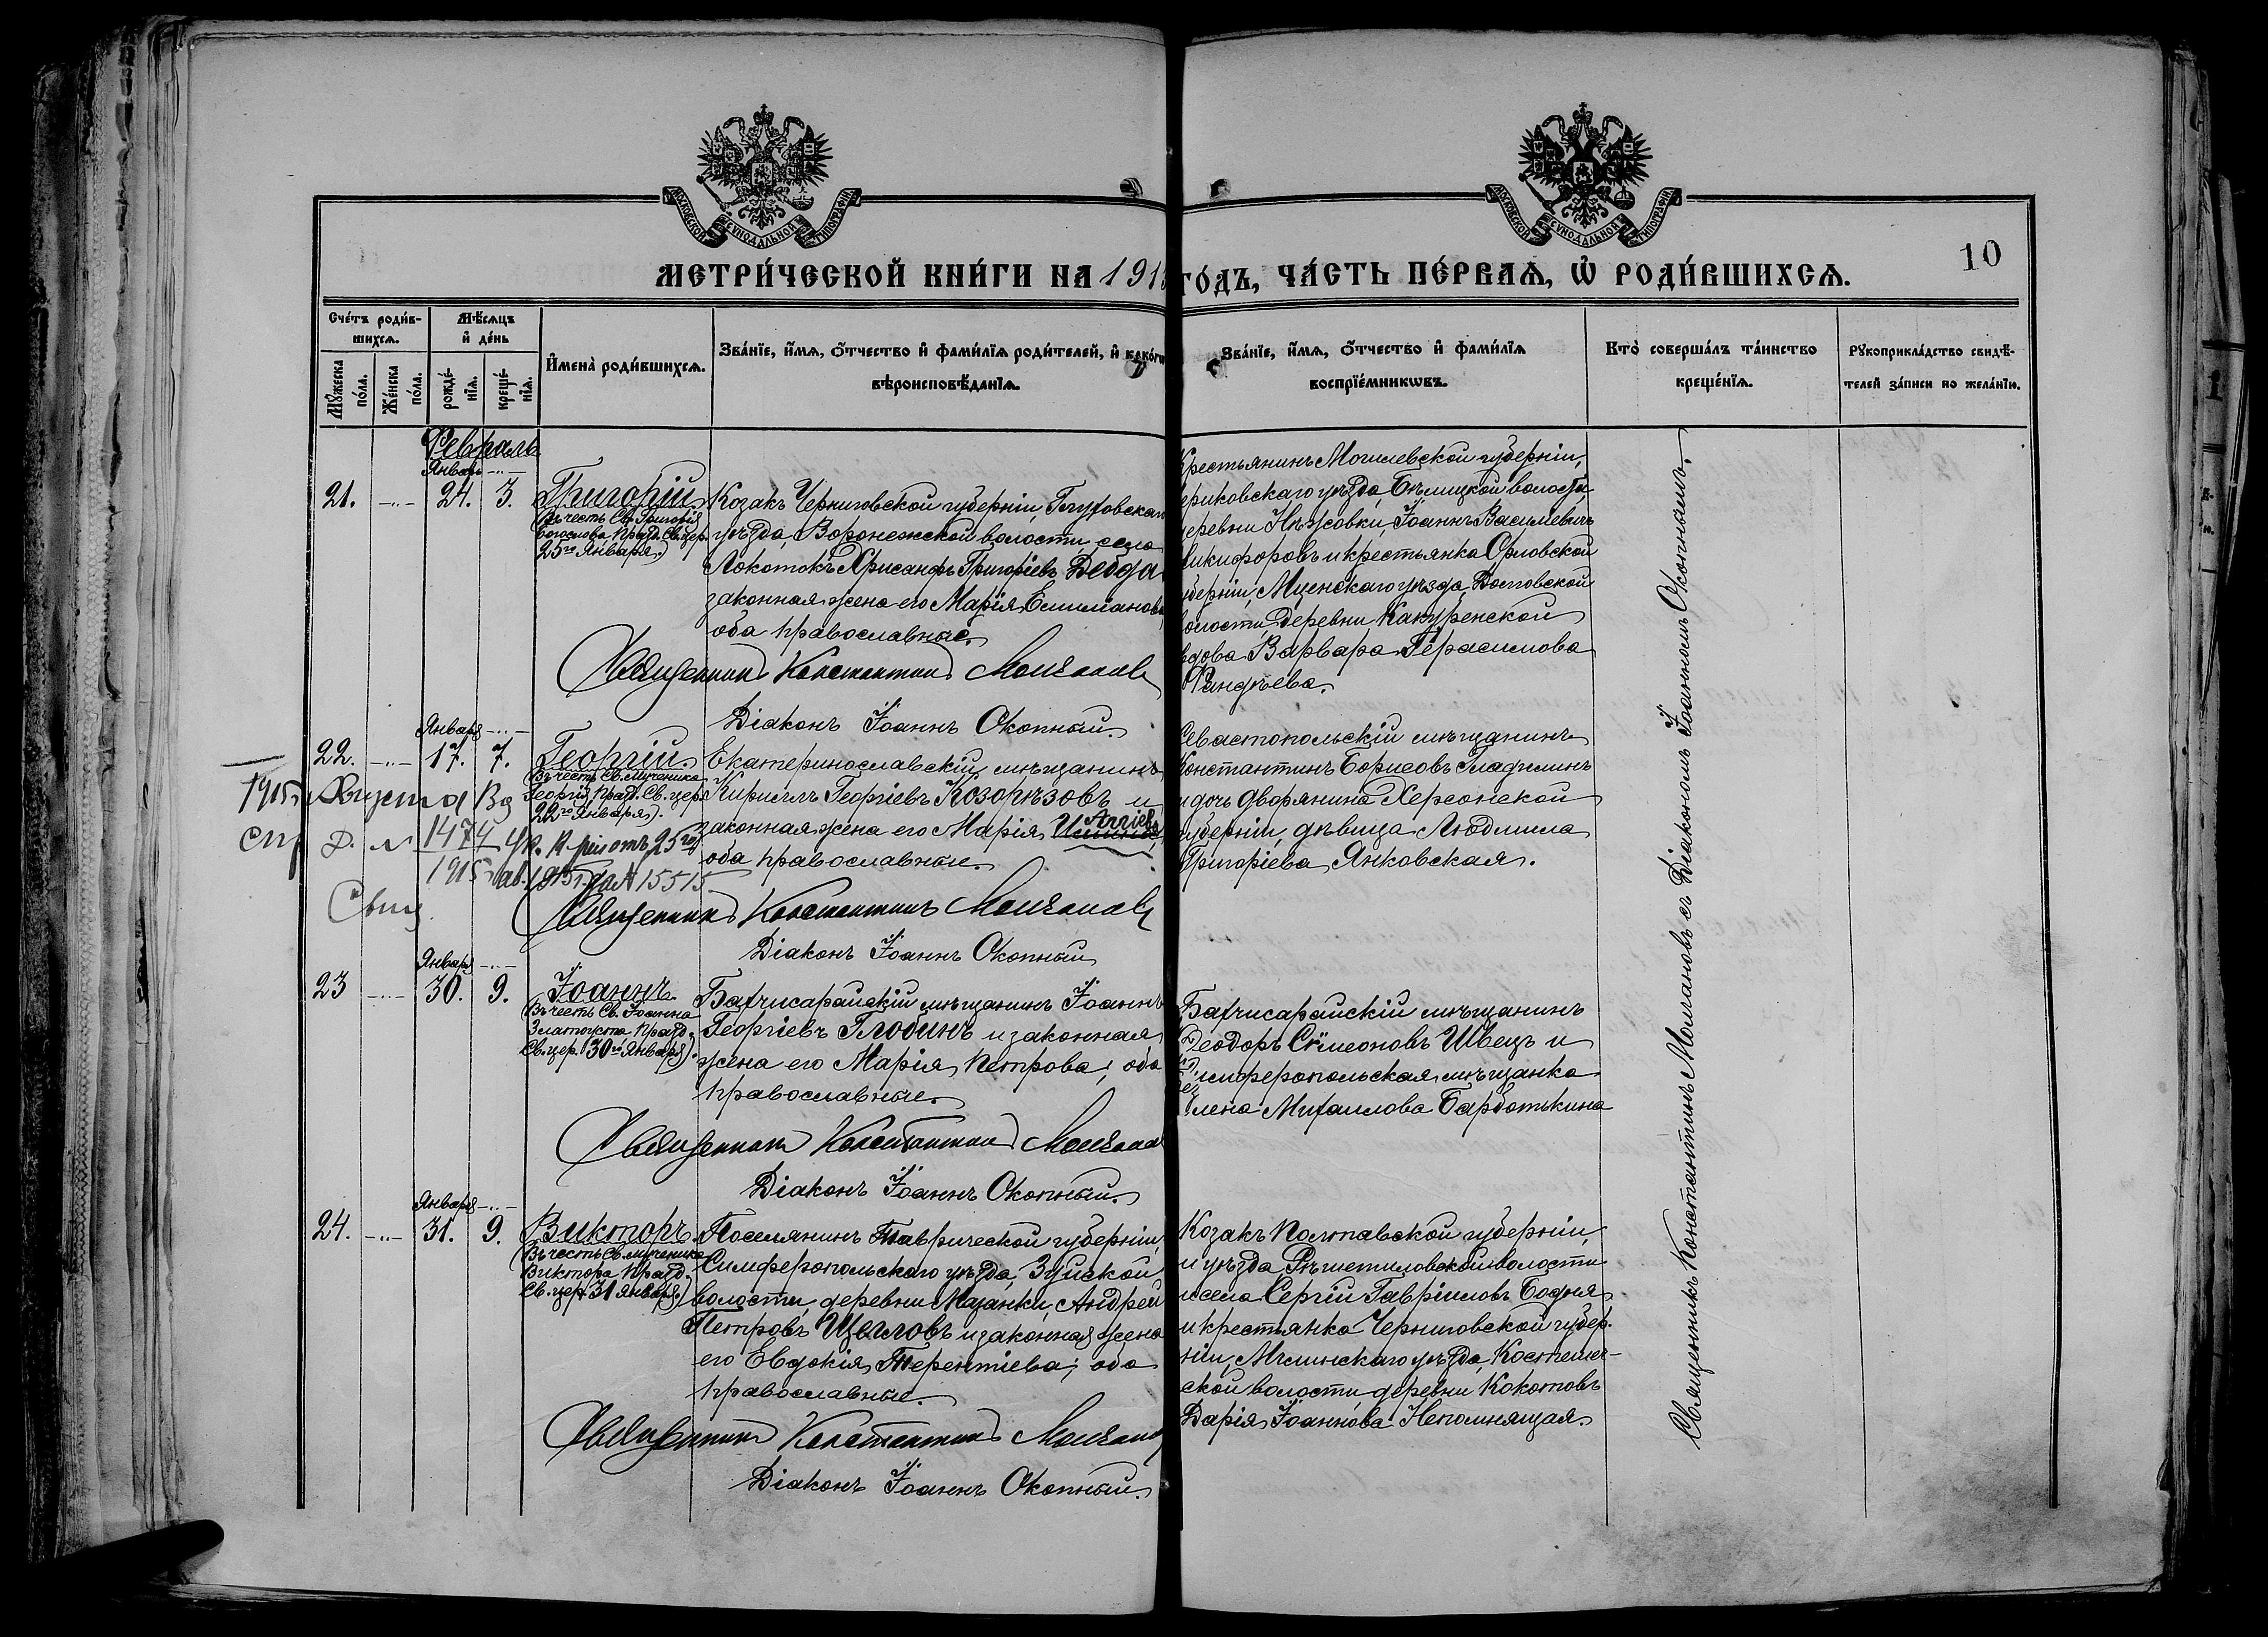 МОСКОВСКОЙ СѴНОДАЛЬНОЙ ТИПОГРАФІИ
МОСКОВСКОЙ СѴНОДАЛЬНОЙ ТИПОГРАФІИ
10
МЕТРИ́ЧЕСКОЙ КНИ́ГИ НА 191
ГО́ДЪ, ЧА́СТЬ ПЕ́РВАѦ, Ѡ҆ РОДИ́ВШИХСѦ.
Сче́тъ роди́вшихсѧ.
Мꙋ́жеска по́ла.
Же́нска по́ла.
Мѣ́сѧцъ и҆ де́нь
рожде́нїѧ.
креще́нїѧ.
И҆мена̀ роди́вшихсѧ.
Зва́нїе, и҆́мѧ, ѻ҆́тчество и҆ фами́лїѧ роди́телей, и҆ како́гѡ
вѣроисповѣ́данїѧ.
Зва́нїе, и҆́мѧ, ѻ҆́тчество и҆ фами́лїѧ
воспрїе́мникѡвъ.
Кто̀ соверша́лъ та́инство
креще́нїѧ.
Рꙋкоприкла́дство свидѣ́-
телей за́писи по жела́нїю.
Февраль
Январ
21. 24. 3. Григорій.
Въ честь Св. Григорія
богослова празд. Св. цер.
25го Января.)
Козакъ Черниговской губерніи, Глуховскаго
уѣзда, Воронежской волости, село
Локотокъ Хрисанфъ Григоріевъ Дейда
законная жена его Марія Емиліанова
оба православные.
Священник Константин Молчанов
Діаконъ Іоаннъ Окопный.
крестьянинъ Могилевской губерніи,
Чериковскаго уѣзда, Бѣлицкой волости
деревни Нѣжовки, Іоаннъ Василіевичъ
Никифоровъ и крестьянка Орловской
губерніи, Мценскаго уѣзда,
волости деревни
вдова Варвара Герасимова
Января
22. 17. 7. Георгій.
Въ честь Св. мученика
Георгія празд. Св. цер.
22го Января).
Екатеринославскій мѣщанинъ
Кириллъ Георгіевъ Козорѣзовъ и
законная жена его Марія
оба православные.
Священник Константинъ Молчанов
Діаконъ Іоаннъ Окопный
Севастопольскій мѣщанинъ
Константинъ Борисовъ Гладилинъ
и дочь дворянина Херсонской
губерніи, дѣвица Людмила
Григоріева Янковская.
1915 Августа
1474
1915
15515
Января
23 30. 9. Іоаннъ.
Въ честь Св. Іоанна
Златоуста празд.
Св. цер. 30го Января).
Бахчисарайскій мѣщанинъ Іоаннъ
Георгіевъ Глобинъ и законная
жена его Марія Петрова; оба
православные.
Священник Константин Молчанов
Діаконъ Іоаннъ Окопный.
Бахчисарайскій мѣщанинъ
Ѳеодоръ Сѵмеоновъ Швецъ и
Симферопольская мѣщанка
Елена Михаилова Барботькина
Января
24. 31. 9. Викторъ.
Въ честь Св. мученика
Виктора празд.
Св. цер. 31 Января)
Поселянинъ Таврической губерніи,
Симферопольскаго уѣзда, Зуйской
волости, деревни Мазанки, Андрей
Петровъ Щегловъ и законная жена
его Евдокія Терентіева; оба
православные.
Священник Константинъ Молчанов
Діаконъ Іоаннъ Окопный.
Козакъ Полтавской губерніи,
и уѣзда Рѣшетиловской волости
и села Сергій Гавріиловъ Бодня
и крестьянка Черниговской губер-
ніи, Мглинскаго уѣзда,
ской волости, деревни Кокотовъ
Дарія Іоаннова Непомнящая.
Священникъ Константинъ Молчановъ съ Діакономъ Іоанномъ Окопнымъ.